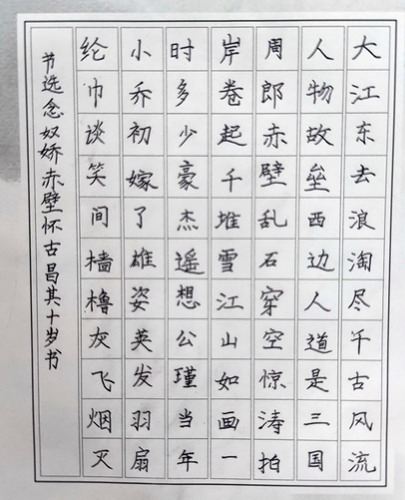 大江东去浪淘尽千古风流
人物故垒西边人道是三国
周郎赤壁乱石穿空惊涛拍
岸卷起千堆雪江山如画一
时多少豪杰遥想公瑾当年
小乔初嫁了雄姿英发羽扇
纶巾谈笑间樯橹灰飞烟灭
节选念奴娇赤壁怀古昌其十岁书